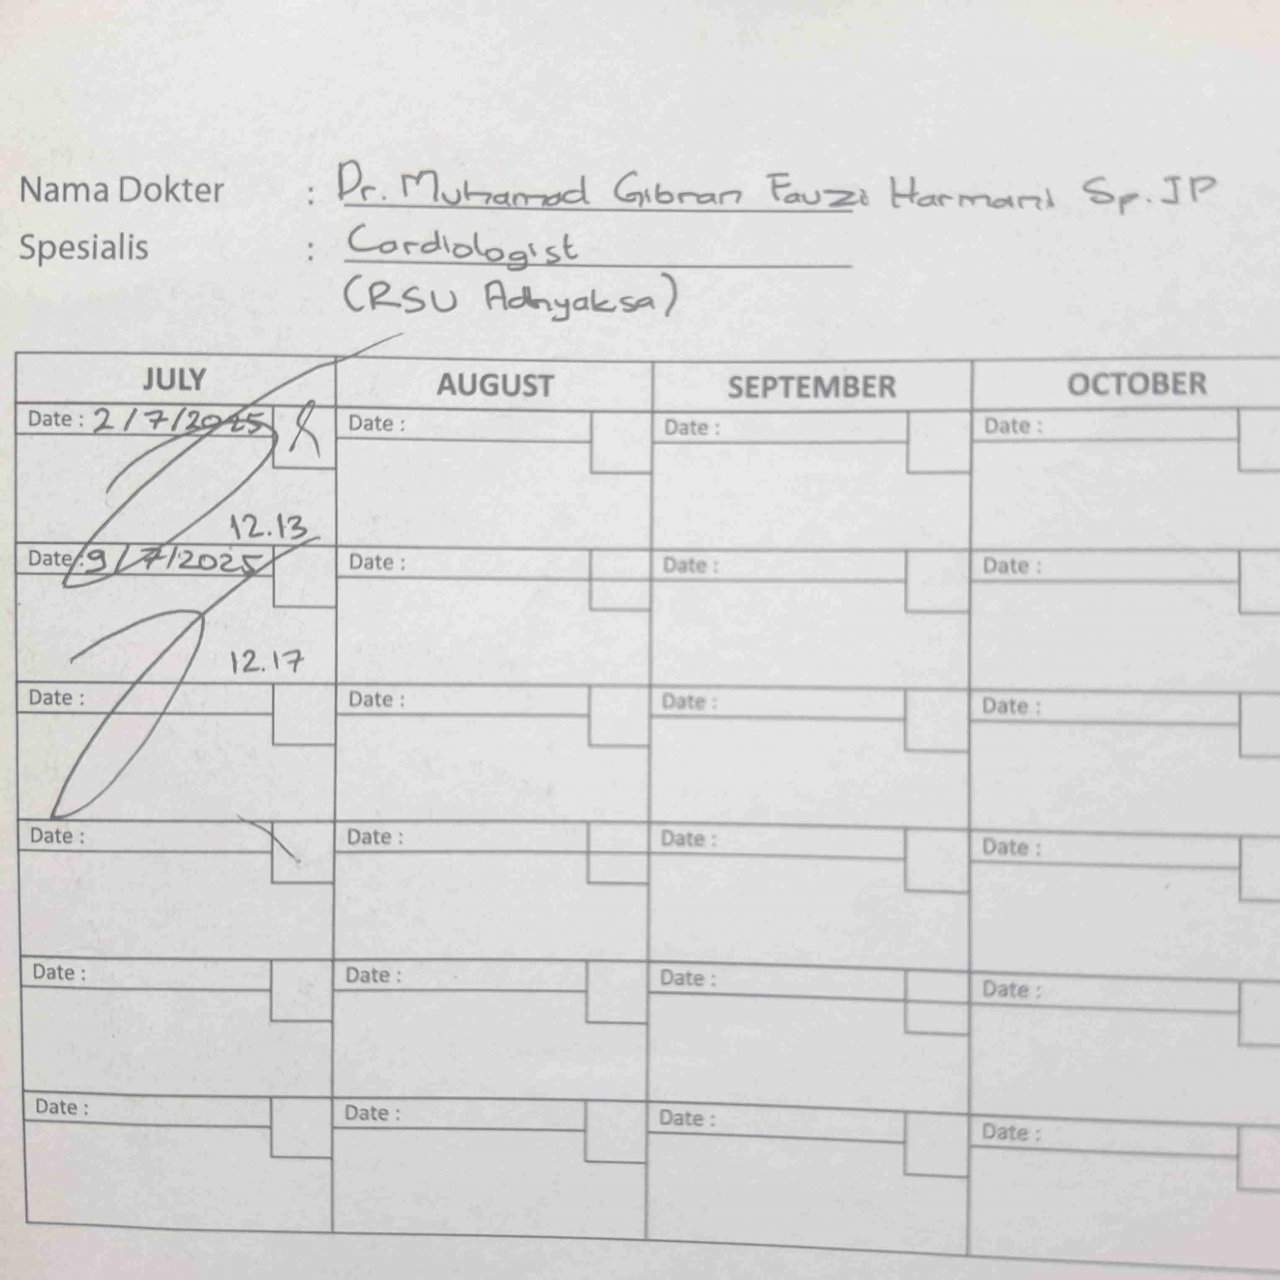 Nama Dokter : Dr. Muhamad Gibran Fauzi Harmani Sp. JP
Spesialis : Cardiologist
(RSU Adhyaksa)
JULY AUGUST SEPTEMBER OCTOBER
Date : 2/7/2025 Date : Date : Date :
12.13
Date : 9/7/2025 Date : Date : Date :
12.17
Date : Date : Date : Date :
Date : Date : Date : Date :
Date : Date : Date : Date :
Date : Date : Date : Date :